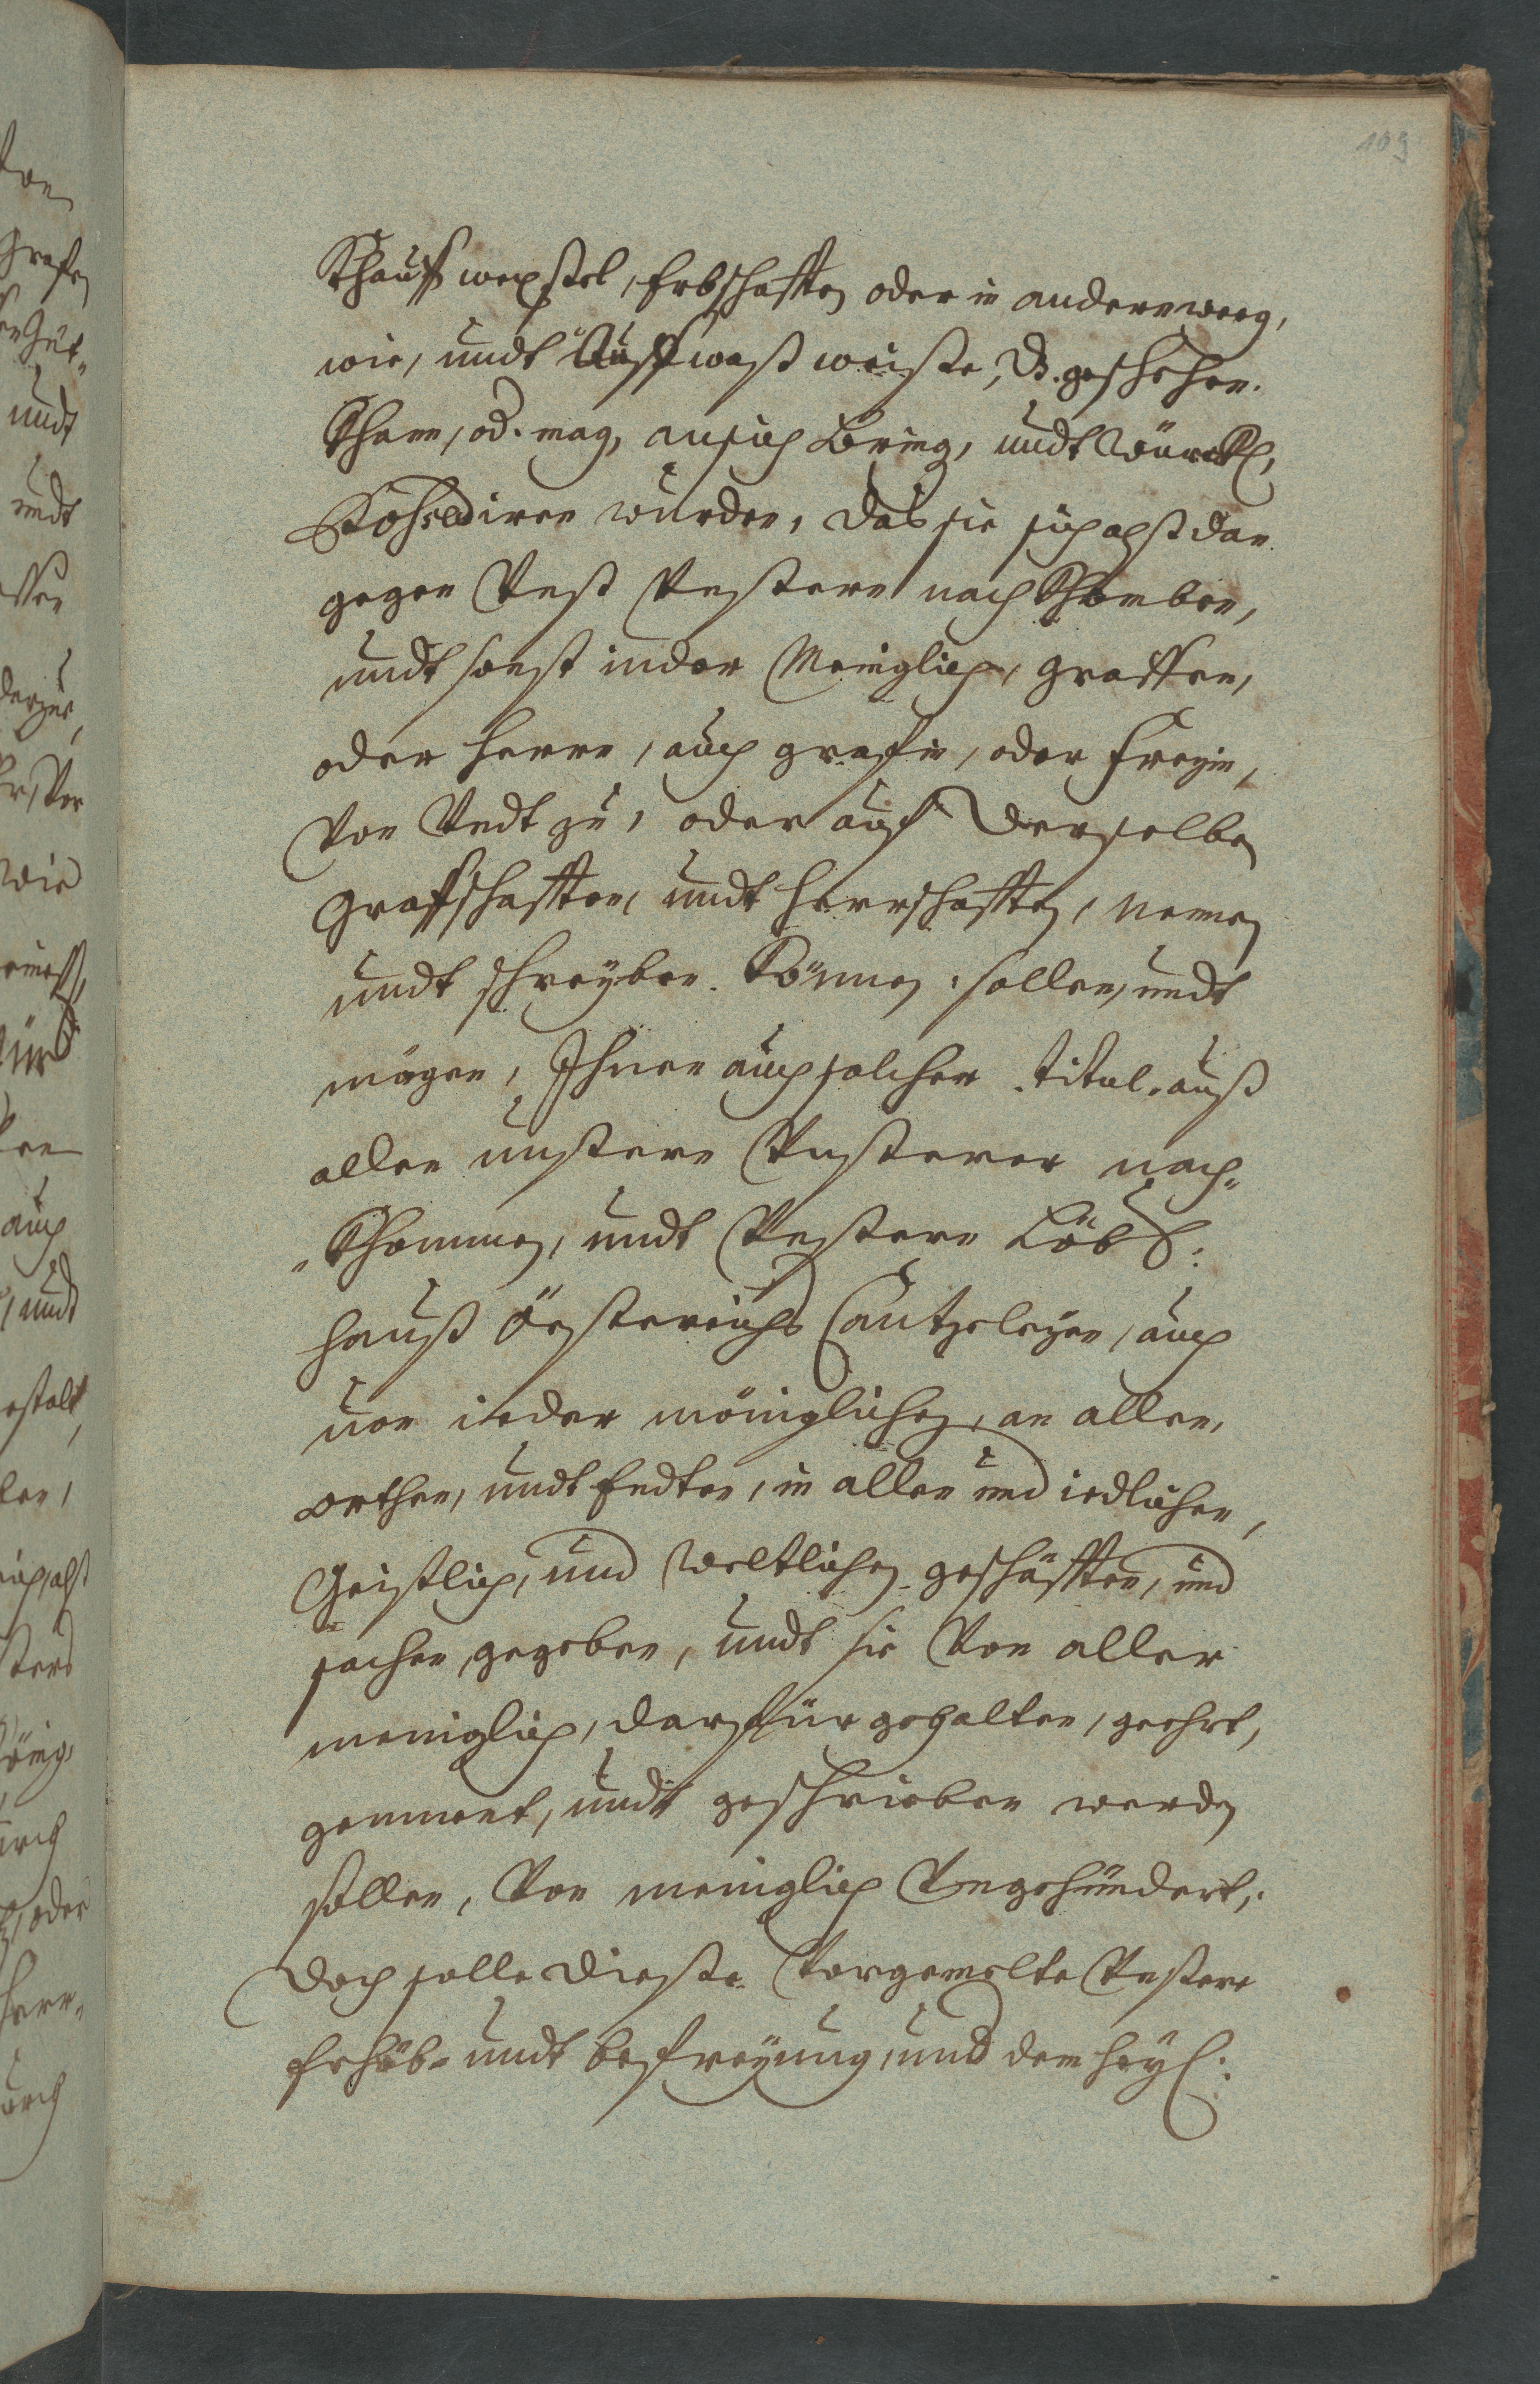 109
Khauff wexstel, Erbschafften oder in anderen weeg,
wie, undt Auff waß weiste, dß. geschehen.
Khann, od. mag, an sich Bring, undt Würckl,
Possediren wurden, das sie sich alßt dan
gegen Unß Unstern nach Khomben,
undt sonst in der Menigliche, Graffen,
oder Herrn, auch Graffin, oder Freyin,
Von Undt zu, oder auf Derselben
Graffschafften, undt Herrschafften, Nennen
undt schreyben. Können. sollen, undt
mögen, Ihnen auch solcher. titul. auß
allen unstern Unsterer nach-
-Khommen, undt Unstern Löbl:
Hauß Össtereichs Cantzeleyen, auch
von ieder möniglichen, an allen,
orthen, undt Endten, in allen und iedlichen,
Geistlich, und Weltlichen geschäfften, und
sachen, gegeben, undt sie Von aller
meniglich, darfür gehalten, geehrt,
gennent, undt geschrieben werden
sollen, Von meniglich Ungehündert,.
Doch solle Dieste Vorgemelte Unstere
Erhöb- undt befreyung, und dem Heyl: